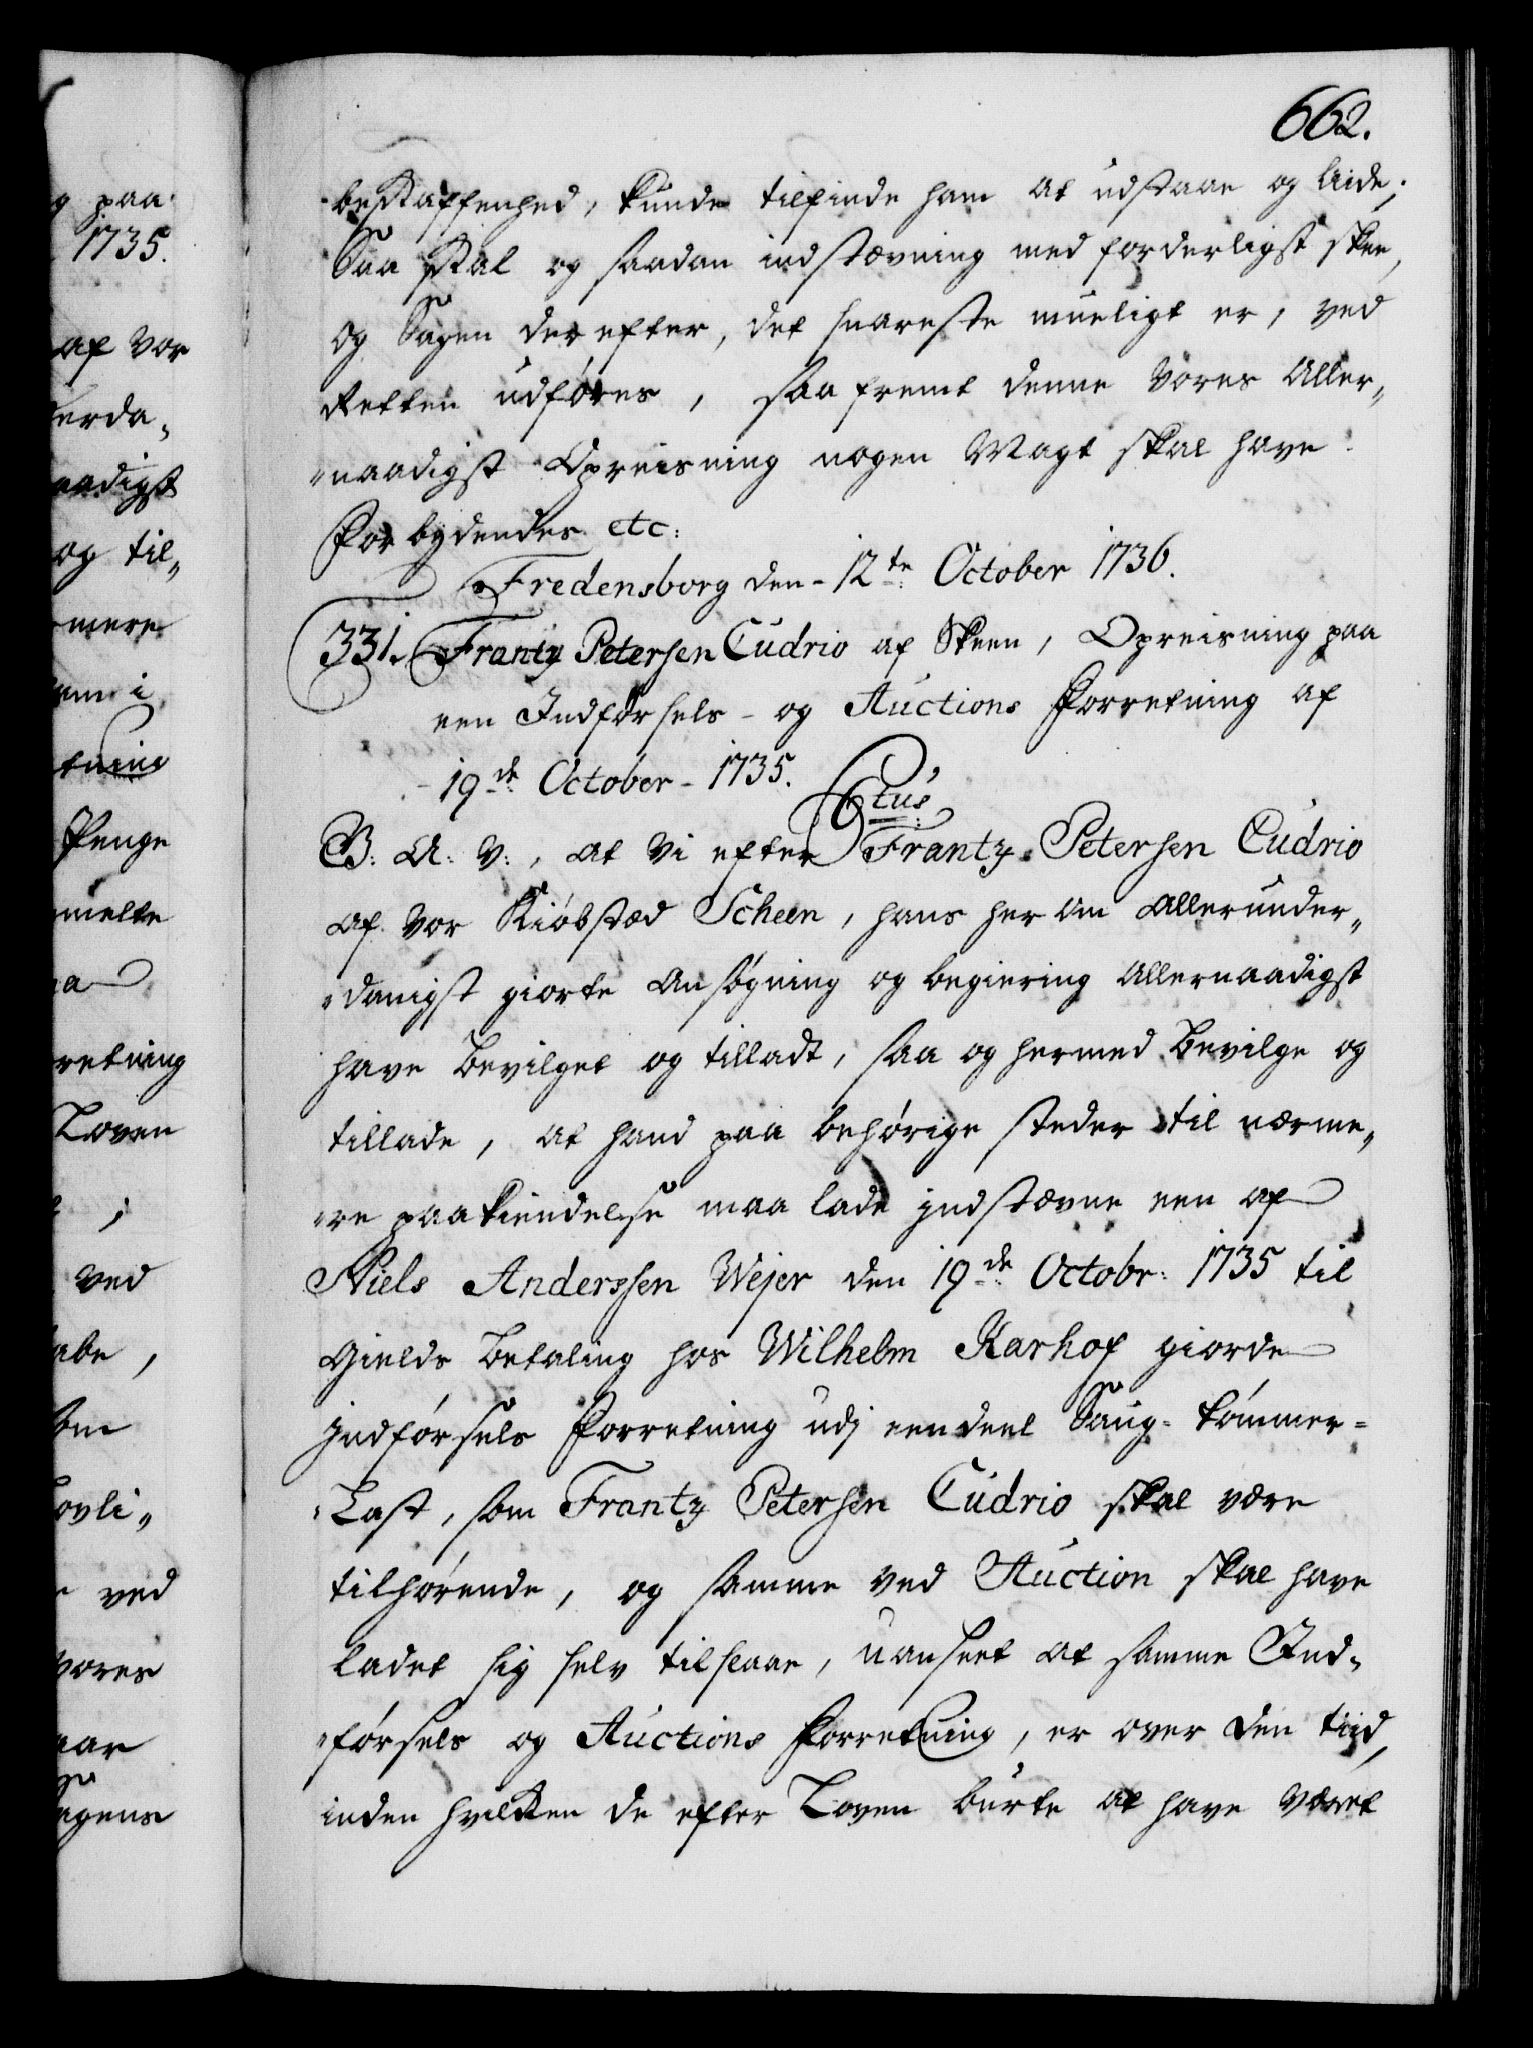 662.
beskaffenhed, kunde tilfinde ham at udstaae og liide;
Saa skal og saadan indstævning med forderligst skee,
og Sagen der efter, det snareste mueligt er, ved
Retten udføres, saa fremt denne Vores Aller„
„naadigst Opreisning nogen Magt skal have.
Forbydendes etc:
Fredensborg den 12te October 1736.
331. Frantz Petersen Cudrio af Skeen, Opreisning paa
een Indførsels- og Auctions Forretning af
19de October 1735.
C6tus
G: A: V:, at Vi efter Frantz Petersen Cudrio
af vor Kiøbstæd Scheen, hans her om allerunder„
„danigst giorte Ansøgning og begiering Allernaadigst
have bevilget og tilladt, saa og hermed bevilge og
tillade, at hand paa behørige steder til nærme„
„re paakiendelse maa lade indstævne een af
Niels Anderssen Wejer den 19de Octobr: 1735 til
Gields betaling hos Wilhelm Karhof giorde
indførsels Forretning udj een deel Saug- tømmer=
Last, som Frantz Petersen Cudrio skal være
tilhørende, og samme ved Auction skal have
ladet sig selv tilslaae, uanseet at samme Ind„
„førsels og Auctions Forretning, er over den tiid,
inden hvilken de efter Loven burte at have været
g paa
1735.
af vor
erda„
aadigst
og til„
mere
am i
tning
Penge
melte
a
retning
Loven
;
ved
abe,
om
ovli„
ved
vores
aar
agens